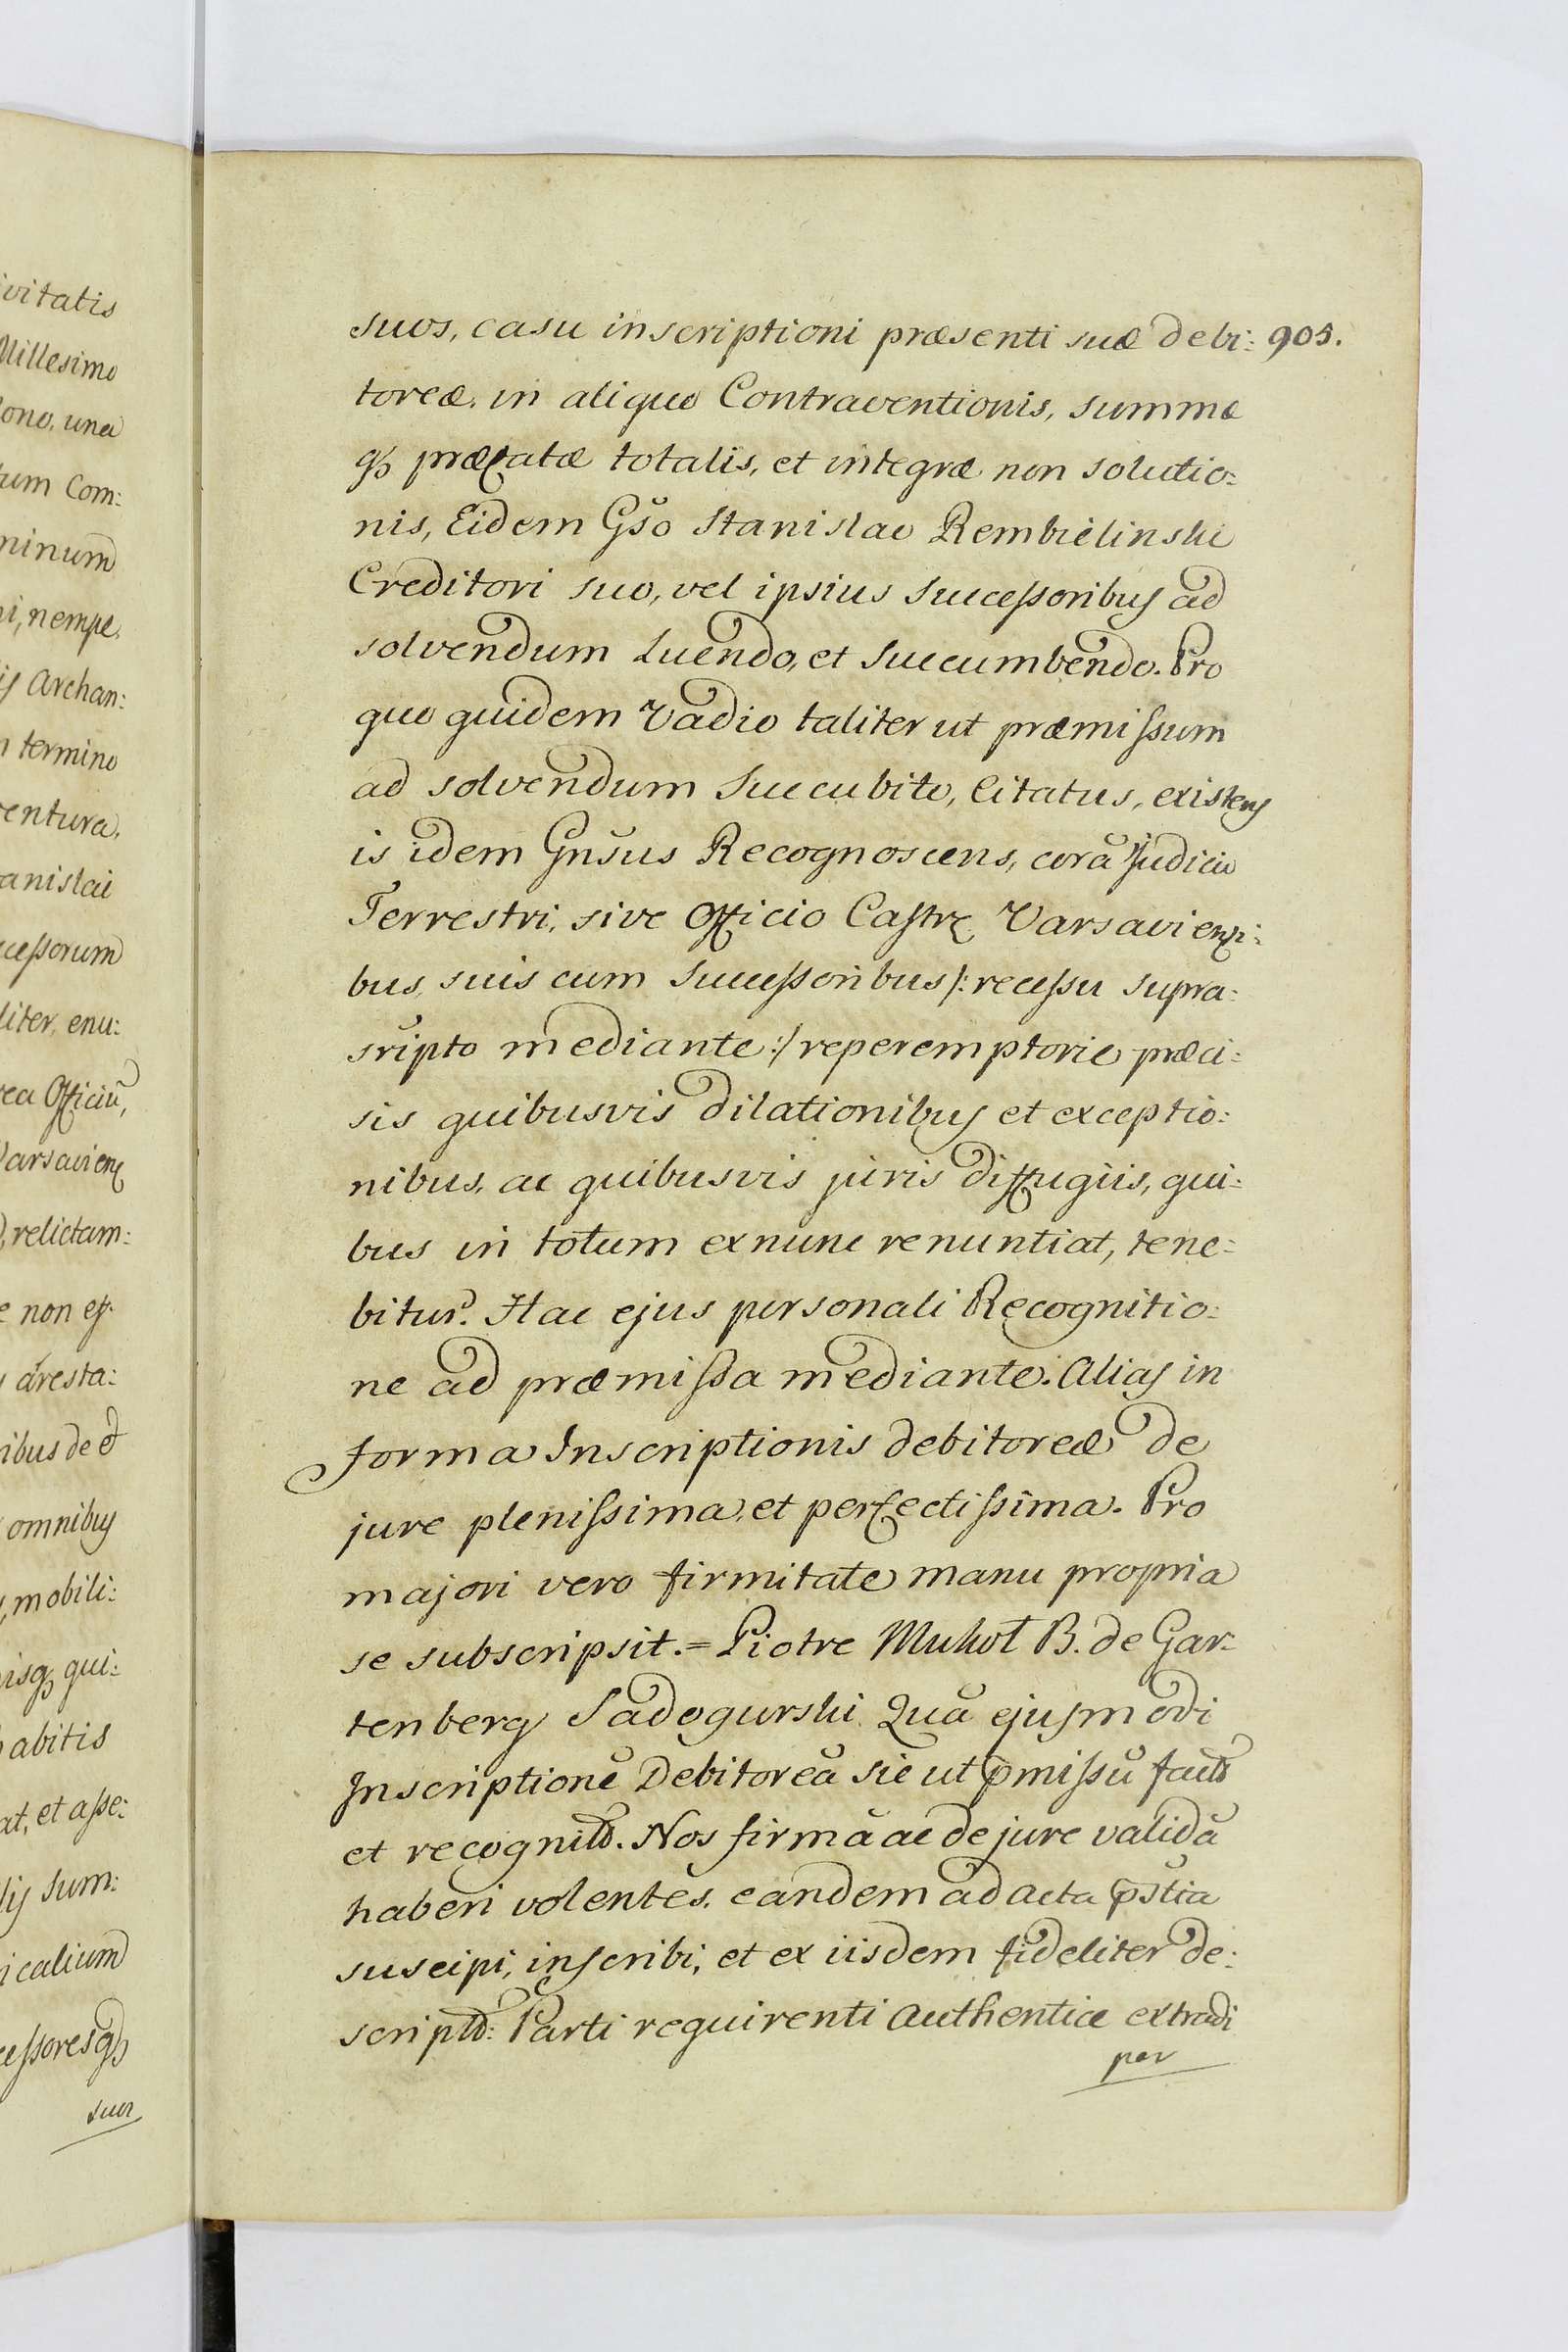 ivitatis
Millesimo
ono, una
tum Com:
ninum
ni, nempe,
is Archan:
n termino
entura,
anislai
cessorum
liter, enu:
rea Officiū,
Varsavien
relictam:
e non ex
aresta:
ribus de et
omnibus
mobili:
isqȝ qui:
abitis
at, et asse:
lis Sum:
icalium
cessoresqȝ
suos
suos, casu inscriptioni præsenti suæ debi: 905.
toreæ, in aliquo Contraventionis, summæ
qȝ præfatæ totalis, et integræ non solutio:
nis, Eidem Gso Stanislao Rembielinski
Creditori suo, vel ipsius Successoribus ad
solvendum Luendo, et Succumbendo. Pro
quo quidem Vadio taliter ut præmissum
ad solvendum Succubito, Citatus, existens
is idem Gnsus Recognoscens, corā Judicio
Terrestri, sive Officio Castr Varsaviensi:
bus, suis cum Successoribus /: recessu supra:
sripto mediante :/ reperemptorie præci:
sis quibusvis dilationibus et exceptio:
nibus, ac quibusvis juris diffugiis, qui:
bus in totum exnunc renuntiat, tene:
bitur. Hac ejus personali Recognitio:
ne ad præmissa mediante. Alias in
forma Inscriptionis debitoreæ de
jure plenissima, et perfectissima. Pro
majori vero firmitate manu propria
se subscripsit. = Piotre Mukoł B. de Gar:
tenberg Sadogurski Quā ejusmodi
Inscriptionē Debitoreā sic ut p̄missū
et recognit. Nos firmā ac de jure validā
haberi volentes, eandem ad Acta p̄stia
suscipi, inscribi, et ex iisdem fideliter de:
script: Parti requirenti Authentice extradi
per